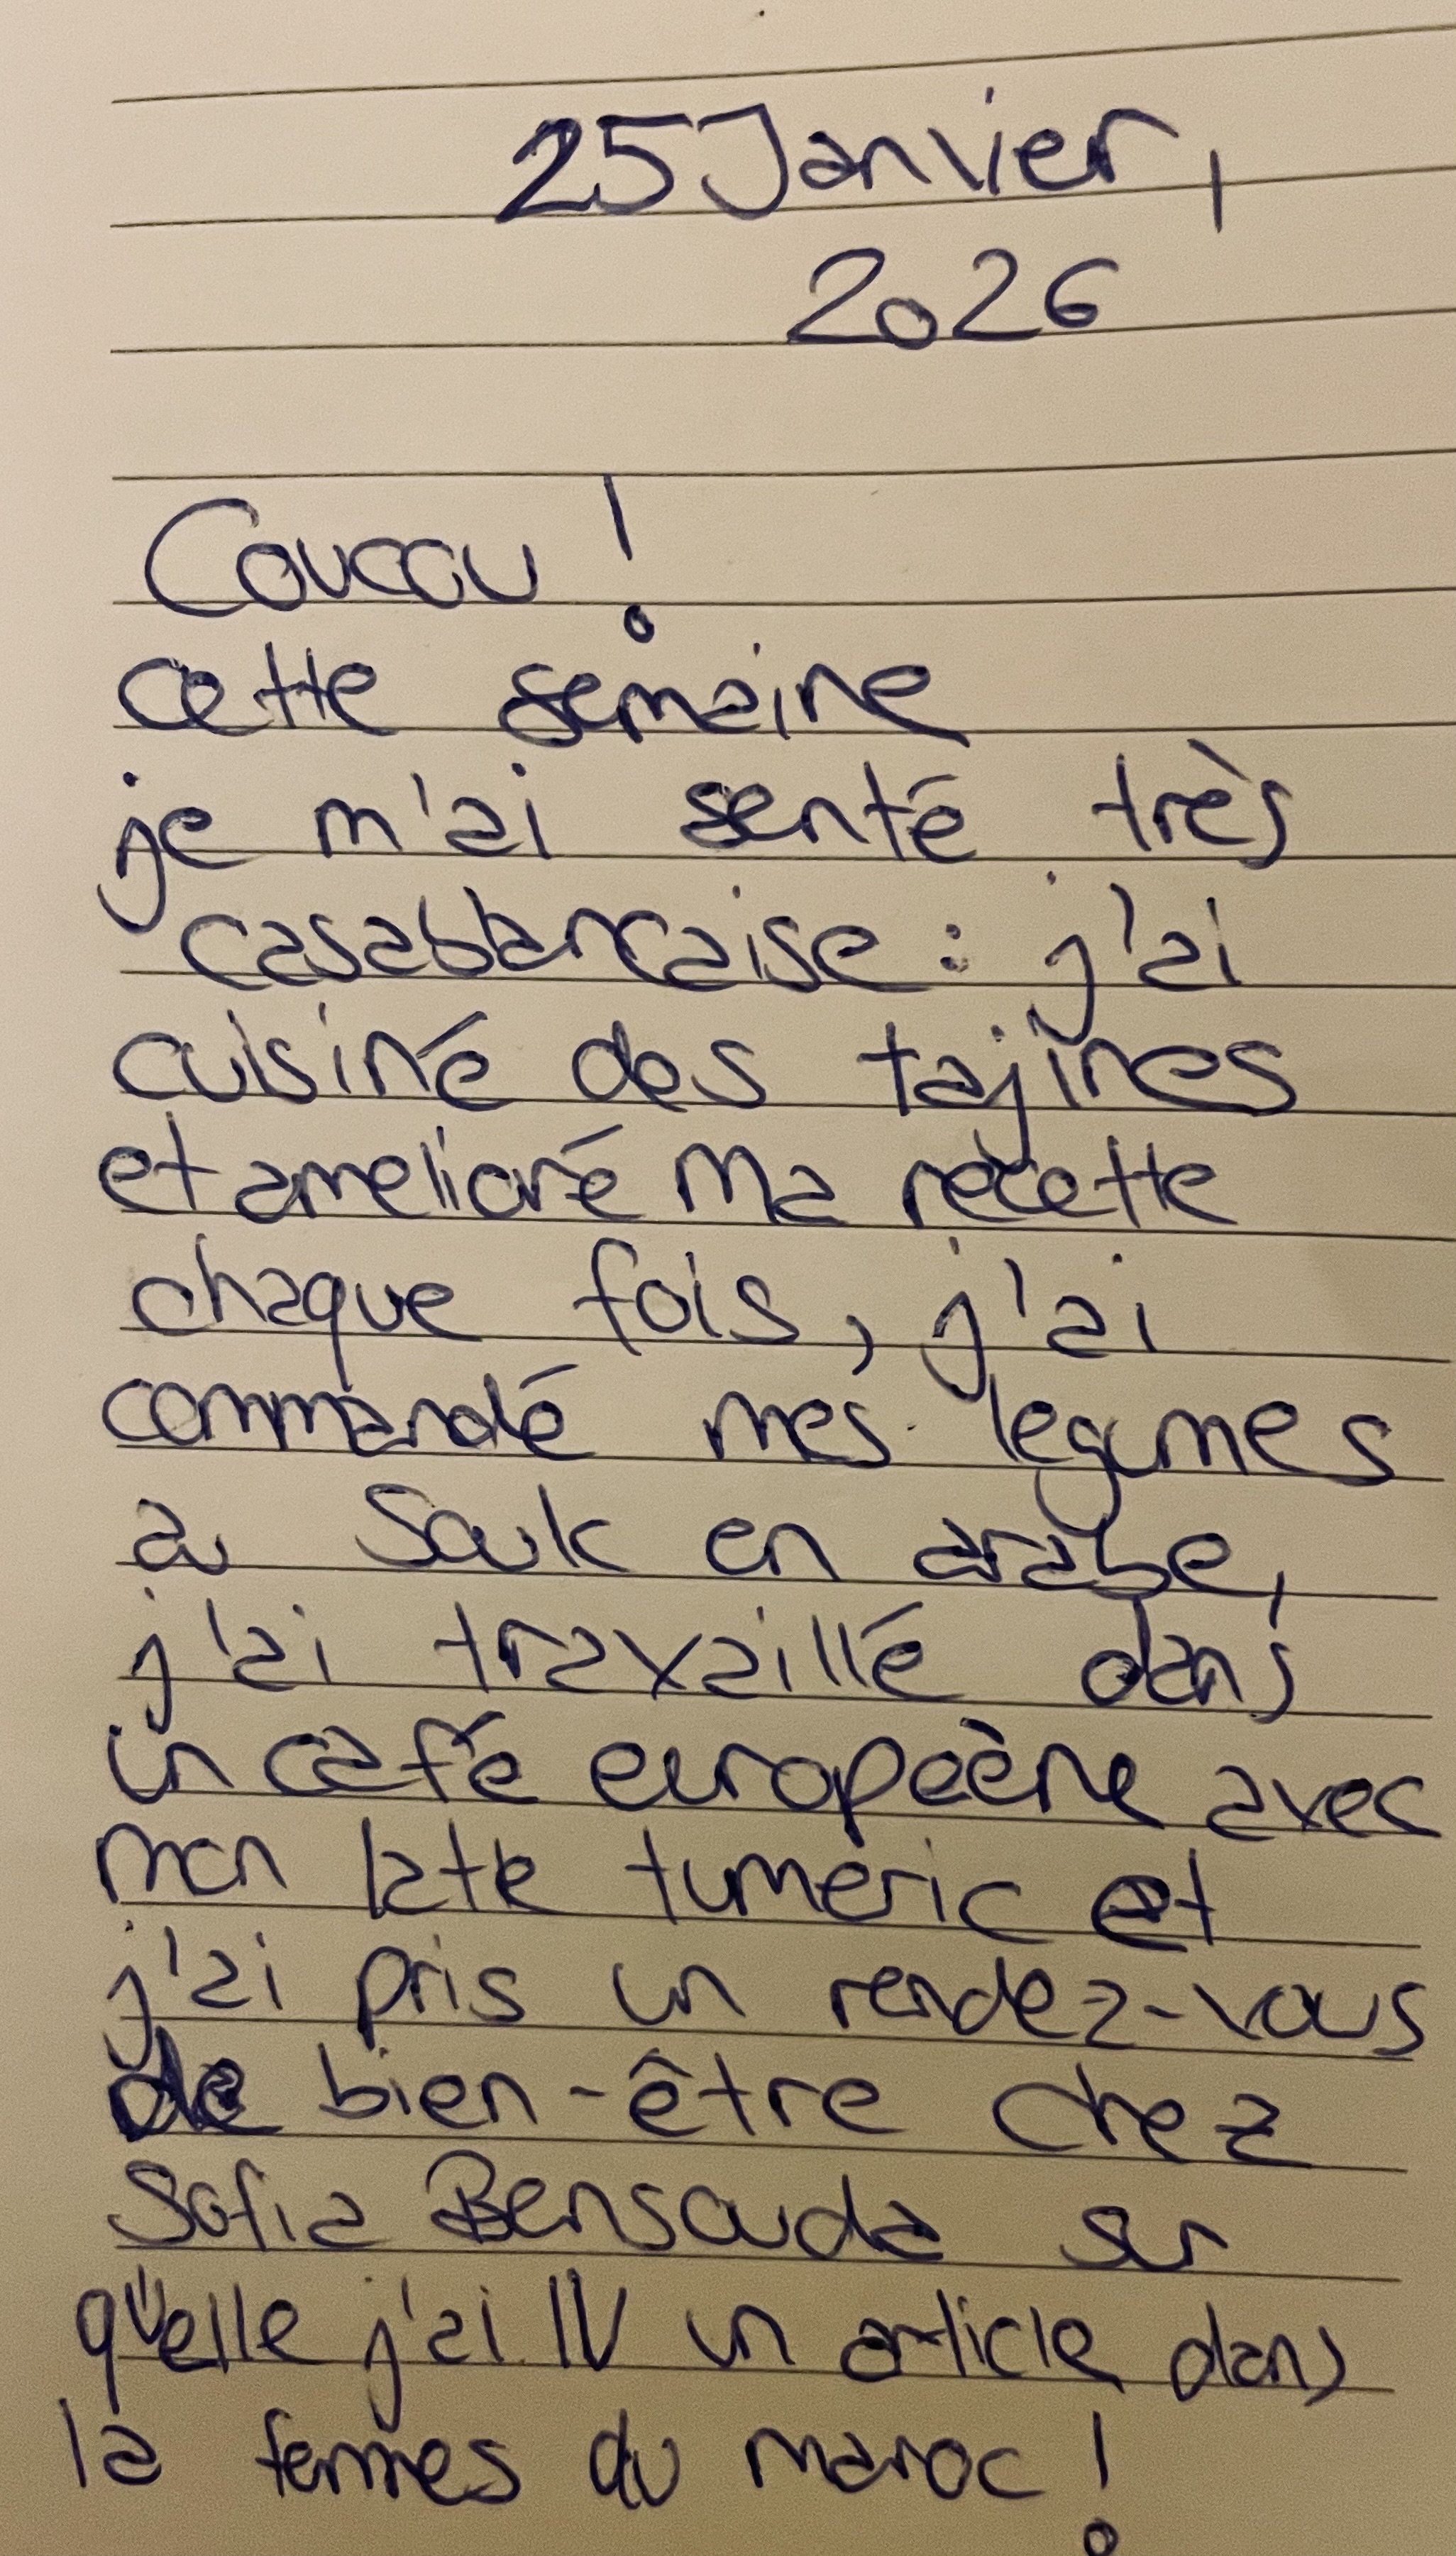 25 Janvier,
2026
Coucou !
cette semaine
je m'ai senté très
casablancaise : j'ai
cuisiné des tajines
et amelioré ma recette
chaque fois, j'ai
commandé mes legumes
au Souk en arabe,
j'ai travaillé dans
un café europeène avec
mon latte tumeric et
j'ai pris un rendez-vous
de bien-être chez
Sofia Bensouda sur
qu'elle j'ai lu un article dans
la femmes du maroc !